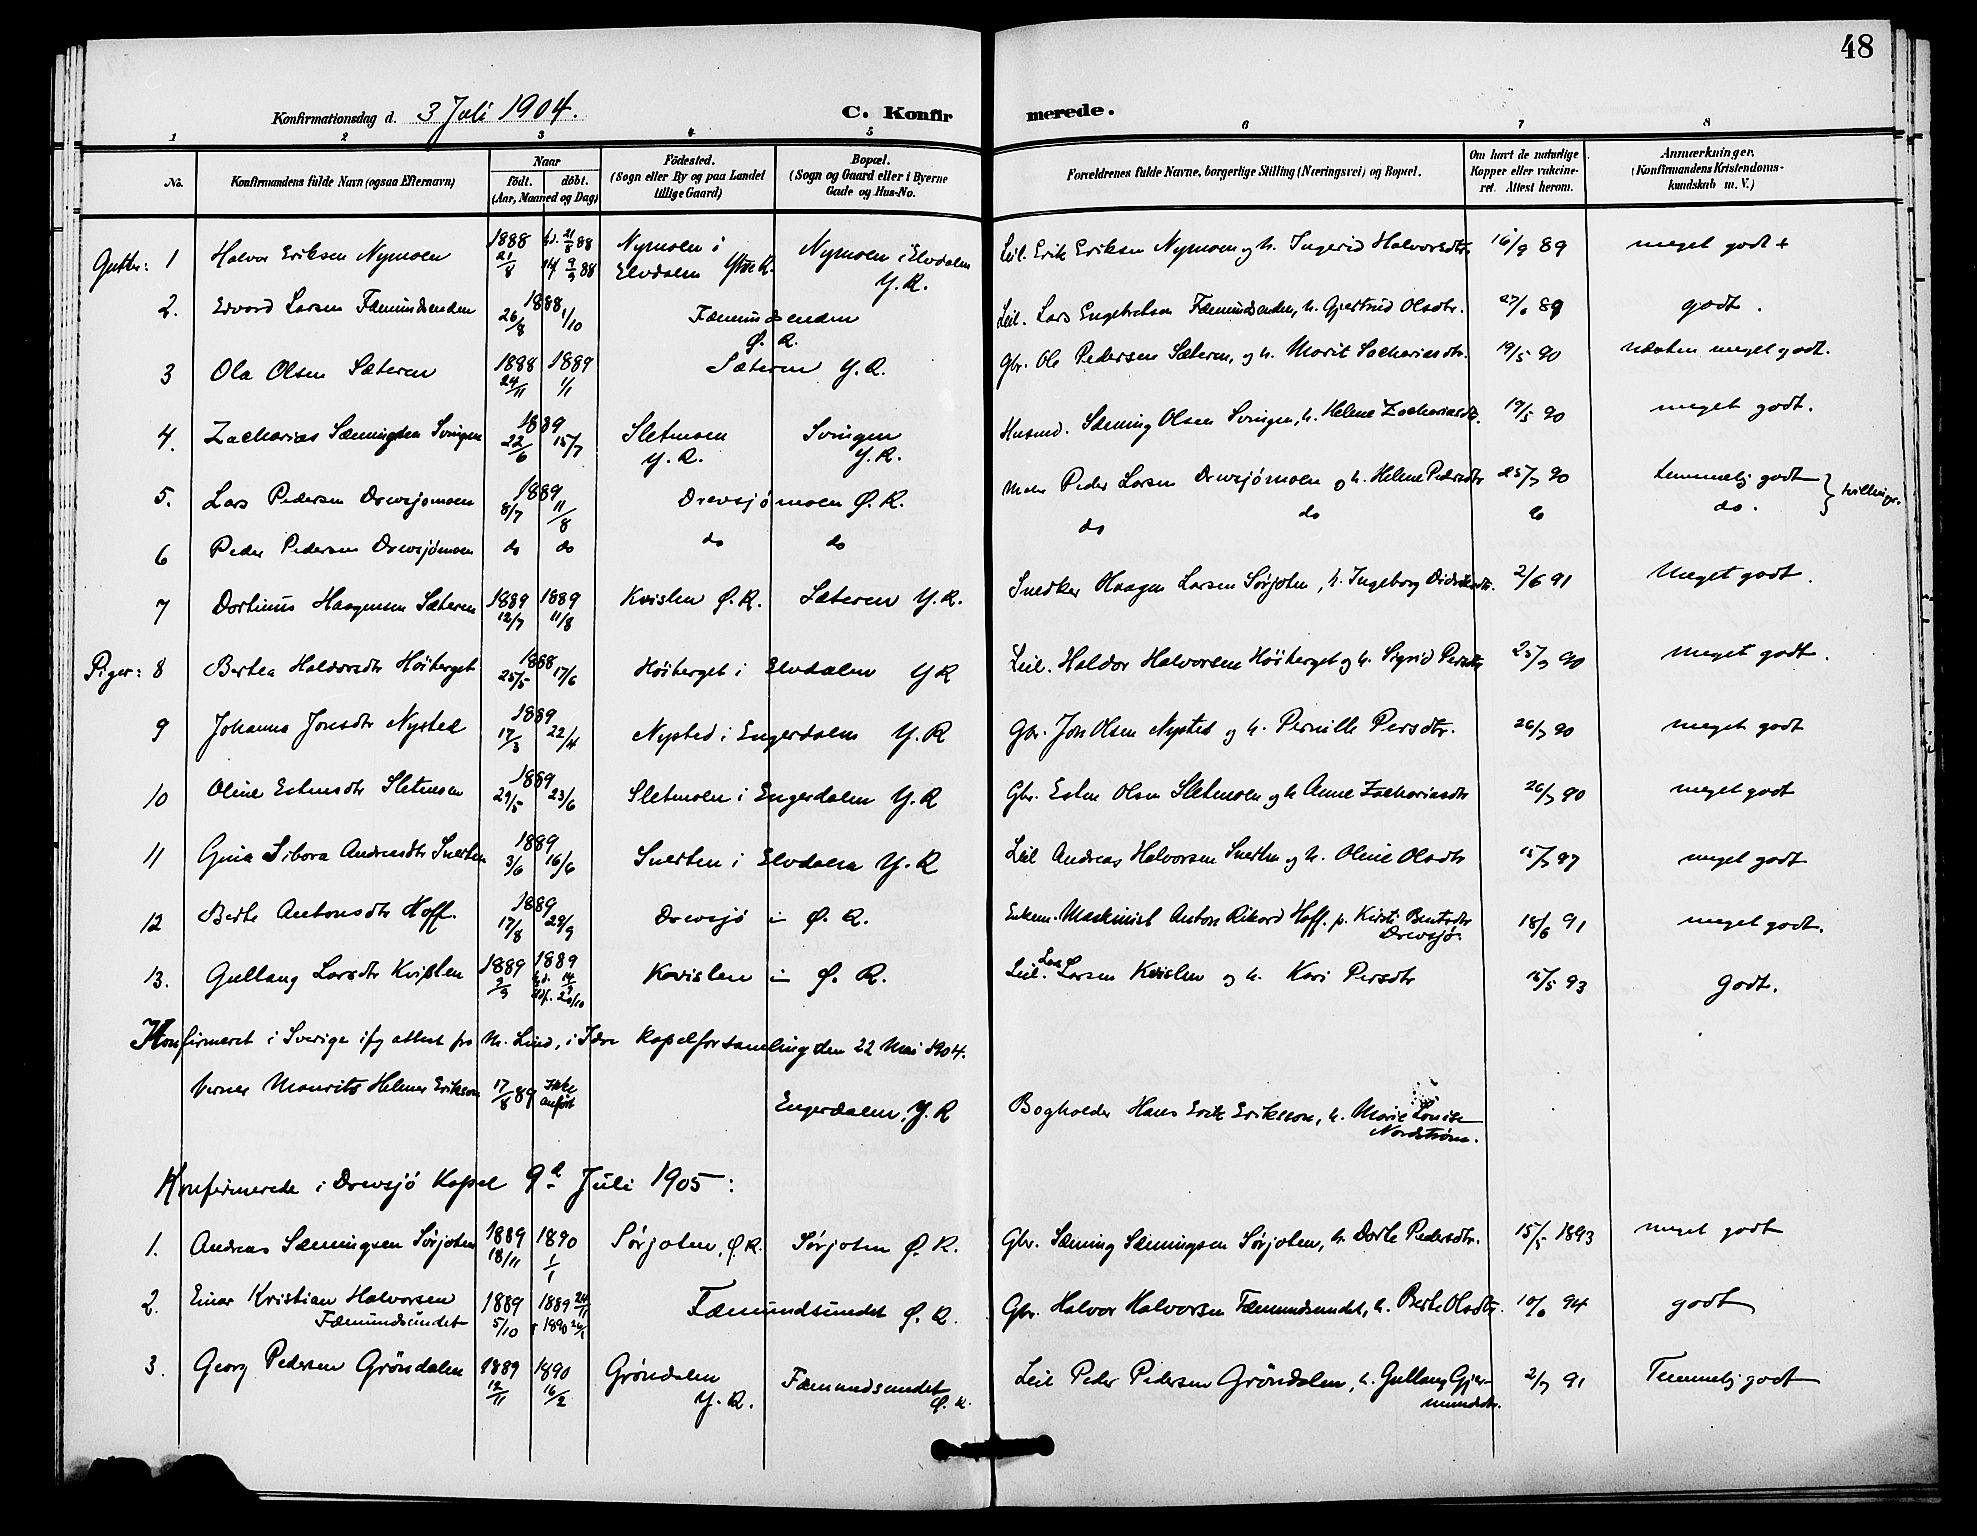 48
Konfirmationsdag d. 3 Juli 1904. C. Konfirmerede.
1 2 3 4 5 6 7 8
No. Konfirmandens fulde Navn (ogsaa Efternavn) Naar födt. döbt. (Aar, Maaned og Dag) Födested. (Sogn eller By og paa Landet tillige Gaard) Bopæl. (Sogn og Gaard eller i Byerne Gade og Hus-No. Forældrenes fulde Navne, borgerlige Stilling (Næringsvei) og Bopæl. Om havt de naturlige Kopper eller vakcineret. Attest herom. Anmærkninger. (Konfirmandens Kristendomskundskab m. V.)
Gutter: 1 Halvor Eriksen Nymoen 1888 21/8 hd. 21/8 88 9/9 88 Nymoen i Elvdalen Ytre R. Nymoen i Elvdalen Y. R. Leil. Erik Eriksen Nymoen og h. Ingerid Halvorsdtr. 16/9 89 meget godt +
2. Edvard Larsen Fæmundsenden 1888 26/8 1/10 Fæmundsenden Ø. R. Leil. Lars Engebretsen Fæmundsenden, h. Gjertrud Olsdtr. 89 godt.
3 Ola Olsen Sæteren 1888 24/11 1889 1/1 Sæteren Y. R. Gbr. Ole Pedersen Sæteren, og h. Marit Zachariasdtr. 19/5 90 næsten meget godt.
4. Zacharias Sæmingsen Svingen 1889 22/6 15/7 Sletmoen Y. R. Svingen Y. R. Husmd. Sæming Olsen Svingen, h. Helene Zachariasdtr. 19/5 90 meget godt.
5. Lars Pedersen Drevsjømoen 1889 8/7 11/8 Drevsjømoen Ø. R. Peder Larsen Drevsjømoen og h. Helene Pedersdtr 25/7 90 temmelig godt } tvillinger.
6 Peder Pedersen Drevsjømoen do do do do do do do do.
7 Dortinus Haagensen Sæteren 1889 12/7 1889 11/8 Kvislen Ø. R. Sæteren Y. R. Snedker Haagen Larsen Sørjoten, h. Ingeborg 2/6 91 Meget godt.
Piger: 8 Bertea Haldorsdtr Höiberget 1888 25/5 17/6 Höiberget i Elvdalen Y R Leil. Haldor Halvorsen Höiberget og h. Sigrid Persdtr 25/7 90 meget godt.
9 Johanna Jonsdtr Nysted 1889 17/3 22/4 Nysted i Engerdalen Y. R Gbr. Jon Olsen Nysted og h. Pernille Persdtr. 26/7 90 meget godt
10 Oline Estensdtr Sletmoen 1889 29/5 23/6 Sletmoen i Engerdalen Y. R Gbr. Esten Olsen Sletmoen og h Anne Zachariasdtr 26/7 90 meget godt
11 Gina Andreasdtr Snerten 1889 3/6 16/6 Snerten i Elvdalen Y. R Leil Andreas Halvorsen Snerten og h. Oline Olsdtr 15/7 97 meget godt
12 Berte Antonsdtr Hoff. 1889 17/8 29/9 Drevsjö i Ø. R. Maskinist Anton Rikard Hoff. Kirsti Berntsdtr Drevsjø. 18/6 91 meget godt.
13. Gullaug Larsdtr Kvislen 1889 2/9 1889 hd. 14/9 20/10 Kvislen i Ø. R. Leil. Lars Larsen Kvislen og h. Kari Persdtr 15/5 93 Godt.
Konfirmeret i Sverige ifg attest fra N. Lind, i Idre Kapelforsamling den 22 Mai 1904.
Verner Maurits Helmer Erikson 17/8 89 Ikke anført Engerdalen, Y. R Bogholder Hans Erik Eriksson, h. Marie Louise Nordstrøm.
Konfirmerede i Drevsjö Kapel 9d Juli 1905:
1. Andreas Sæmingsen Sørjoten 1889 18/11 1890 1/1 Sørjoten, Ø. R. Sørjoten Ø. R. Gbr. Sæming Sæmingsen Sørjoten, h. Dorte Pedersdtr. 15/5 1893 meget godt
2. Einar Kristian Halvorsen Fæmundsundet 1889 5/10 1889 24/11 1890 26/1 Fæmundsundet Ø. R. Gbr. Halvor Halvorsen Fæmundsundet, h. Berte Olsdtr. 94 godt
3. Georg Pedersen Gröndalen 1889 12/11 1890 16/2 Gröndalen Y. R. Fæmundsundet Ø. R. Leil Peder Pedersen Gröndalen, h. Gullaug Gjermundsdtr. 2/7 91 Temmelig godt